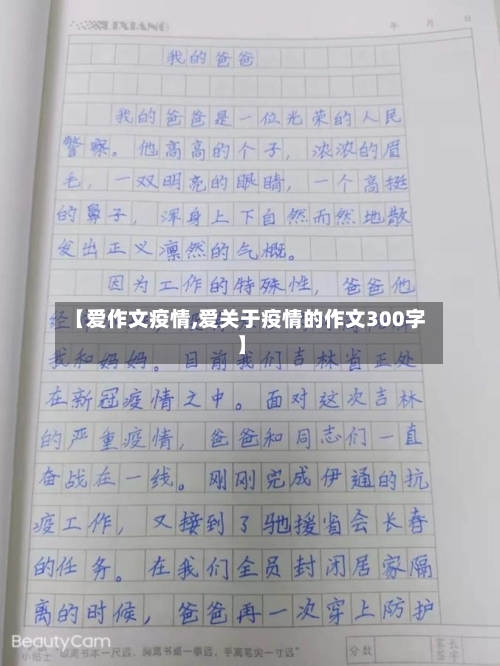 LIXIANG
年 月 日
我的爸爸
我的爸爸是一位光荣的人民
警察。他高高的个子,浓浓的眉
毛,一双明亮的眼睛,一个高挺
的鼻子,浑身上下自然而然地散
发出正义凛然的气概。
因为工作的特殊性,爸爸他
经
【爱作文疫情,爱关于疫情的作文300字
】
我和妈妈。目前我们吉林省正处
在新冠疫情之中。面对这次吉林
的严重疫情,爸爸和同志们一直
奋战在一线。刚刚完成伊通的抗
疫工作,又接到了驰援省会长春
的任务。在我们全员封闭居家隔
离的时候,爸爸再一次穿上防护
BeautyCam
小贴士 眼离书本一尺远,胸离书桌一拳远,手离笔尖一寸远
分数
家长
签字